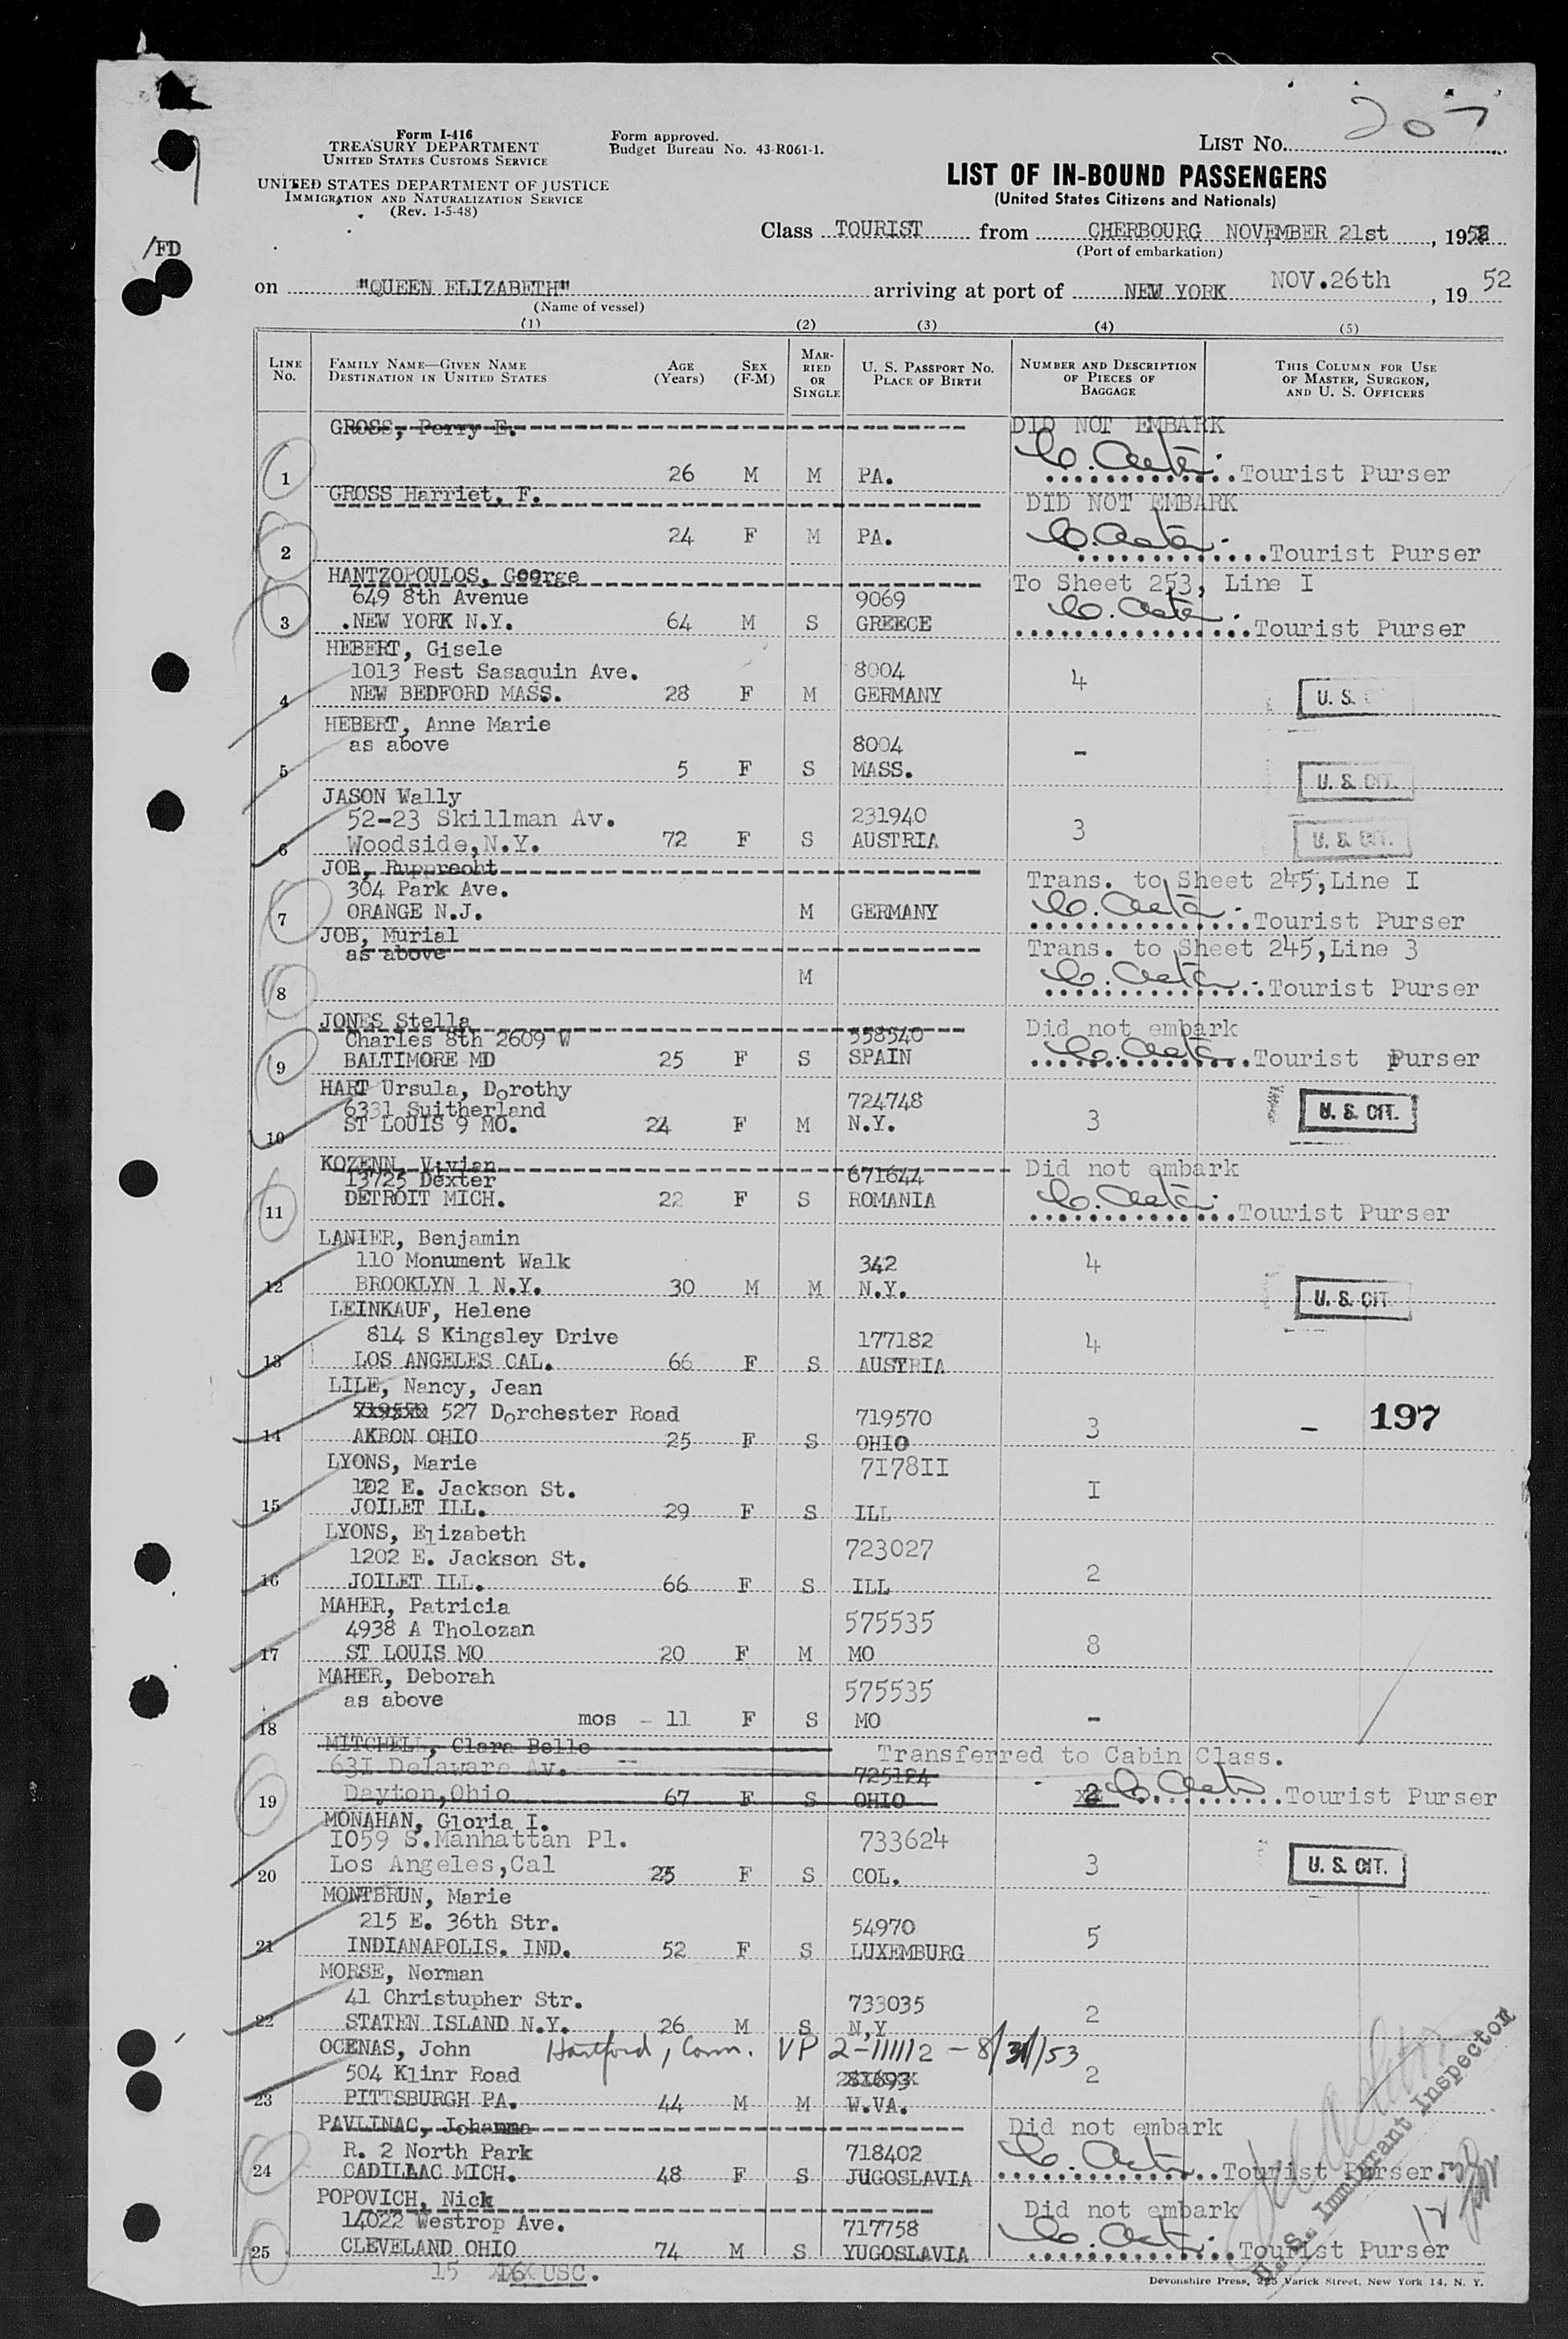 207
Form I-416
TREASURY DEPARTMENT
UNITED STATES CUSTOMS SERVICE
Form approved.
Budget Bureau No. 43-R061-1.
LIST No.
UNITED STATES DEPARTMENT OF JUSTICE
IMMIGRATION AND NATURALIZATION SERVICE
(Rev. 1-5-48)
LIST OF IN-BOUND PASSENGERS
(United States Citizens and Nationals)
/FD
Class TOURIST from CHERBOURG NOVEMBER 21st, 1952
(Port of embarkation)
on "QUEEN ELIZABETH" arriving at port of NEW YORK NOV.26th, 19 52
(Name of vessel)
(1) (2) (3) (4) (5)
LINE No. FAMILY NAME—GIVEN NAME DESTINATION IN UNITED STATES AGE (Years) SEX (F-M) MARRIED OR SINGLE U. S. PASSPORT No. PLACE OF BIRTH NUMBER AND DESCRIPTION OF PIECES OF BAGGAGE THIS COLUMN FOR USE OF MASTER, SURGEON, AND U. S. OFFICERS
GROSS, Perry E. DID NOT EMBARK
1 26 M M PA. Tourist Purser
GROSS Harriet, F. DID NOT EMBARK
2 24 F M PA. Tourist Purser
HANTZOPOULOS, George To Sheet 253, Line I
649 8th Avenue 9069
3 .NEW YORK N.Y. 64 M S GREECE Tourist Purser
HEBERT, Gisele
1013 Rest Sasaquin Ave. 8004 4
4 NEW BEDFORD MASS. 28 F M GERMANY U. S.
HEBERT, Anne Marie
as above 8004 -
5 5 F S MASS. U. S. CIT.
JASON Wally
52-23 Skillman Av. 231940 3
6 Woodside,N.Y. 72 F S AUSTRIA U. S. CIT.
JOB, Rupprecht Trans. to Sheet 245,Line I
304 Park Ave.
7 ORANGE N.J. M GERMANY Tourist Purser
JOB, Murial Trans. to Sheet 245,Line 3
as above
8 M Tourist Purser
JONES Stella Did not embark
Charles 8th 2609 W 558540
9 BALTIMORE MD 25 F S SPAIN Tourist purser
HART Ursula, Dorothy
6331 Suitherland 724748 3
10 ST LOUIS 9 MO. 24 F M N.Y. U. S. CIT.
KOZENN, Vivian Did not embark
13725 Dexter 671644
11 DETROIT MICH. 22 F S ROMANIA Tourist Purser
LANIER, Benjamin
110 Monument Walk 342 4
12 BROOKLYN 1 N.Y. 30 M M N.Y. U. S. CIT.
LEINKAUF, Helene
814 S Kingsley Drive 177182 4
13 LOS ANGELES CAL. 66 F S AUSTRIA
LILE, Nancy, Jean
527 Dorchester Road 719570 3 - 197
14 AKRON OHIO 25 F S OHIO
LYONS, Marie 7178II
102 E. Jackson St. I
15 JOILET ILL. 29 F S ILL
LYONS, Elizabeth 723027
1202 E. Jackson St. 2
16 JOILET ILL. 66 F S ILL
MAHER, Patricia 575535
4938 A Tholozan
17 ST LOUIS MO 20 F M MO 8
MAHER, Deborah 575535
as above
18 mos - 11 F S MO -
MITCHELL, Clara Belle Transferred to Cabin Class.
631 Delaware Av. 725124
19 Dayton,Ohio 67 F S OHIO 2 Tourist Purser
MONAHAN, Gloria I.
I059 S.Manhattan Pl. 733624
20 Los Angeles,Cal 25 F S COL. 3 U. S. CIT.
MONTBRUN, Marie
215 E. 36th Str. 54970 5
21 INDIANAPOLIS. IND. 52 F S LUXEMBURG
MORSE, Norman
41 Christupher Str. 733035 2
22 STATEN ISLAND N.Y. 26 M S N,Y
OCENAS, John Hartford, Conn. VP 2-111112 - 8/31/53
504 Klinr Road 2
23 PITTSBURGH PA. 44 M M W.VA.
PAVLINAC, Johanna Did not embark
R. 2 North Park 718402
24 CADILAAC MICH. 48 F S JUGOSLAVIA Tourist Purser.
POPOVICH, Nick Did not embark
14022 Westrop Ave. 717758
25 CLEVELAND OHIO 74 M S YUGOSLAVIA Tourist Purser
U. S. Immigrant Inspector
15 16 USC.
Devonshire Press, 225 Varick Street, New York 14, N. Y.